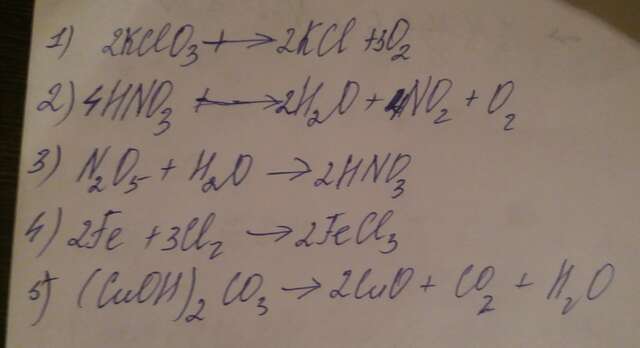 1) 2KClO₃ + → 2KCl + 3O₂
2) 4HNO₃ + → 2H₂O + 4NO₂ + O₂
3) N₂O₅ + H₂O → 2HNO₃
4) 2Fe + 3Cl₂ → 2FeCl₃
5) (CuOH)₂CO₃ → 2CuO + CO₂ + H₂O